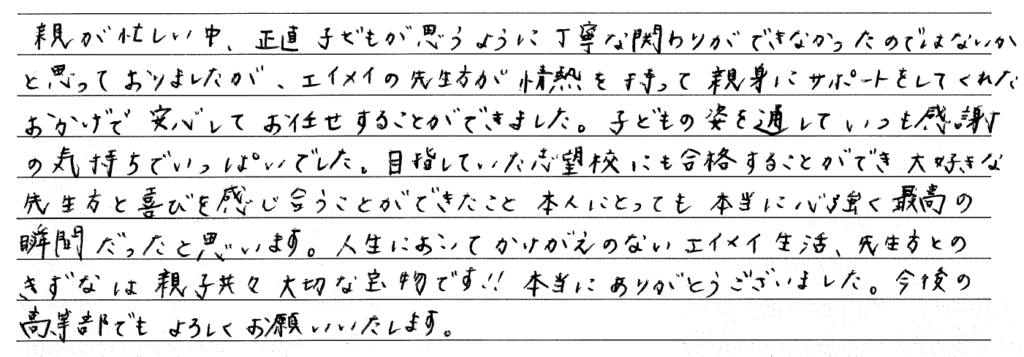 親が忙しい中、正直子どもが思うように丁寧な関わりができなかったのではないか
と思っておりましたが、エイメイの先生方が情熱を持って親身にサポートをしてくれた
おかげで安心してお任せすることができました。子どもの姿を通していつも感謝
の気持ちでいっぱいでした。目指していた志望校にも合格することができ大好きな
先生方と喜びを感じ合うことができたこと本人にとっても本当に心強く最高の
瞬間だったと思います。人生においてかけがえのないエイメイ生活、先生方との
きずなは親子共々大切な宝物です!!本当にありがとうございました。今後の
高等部でもよろしくお願いいたします。